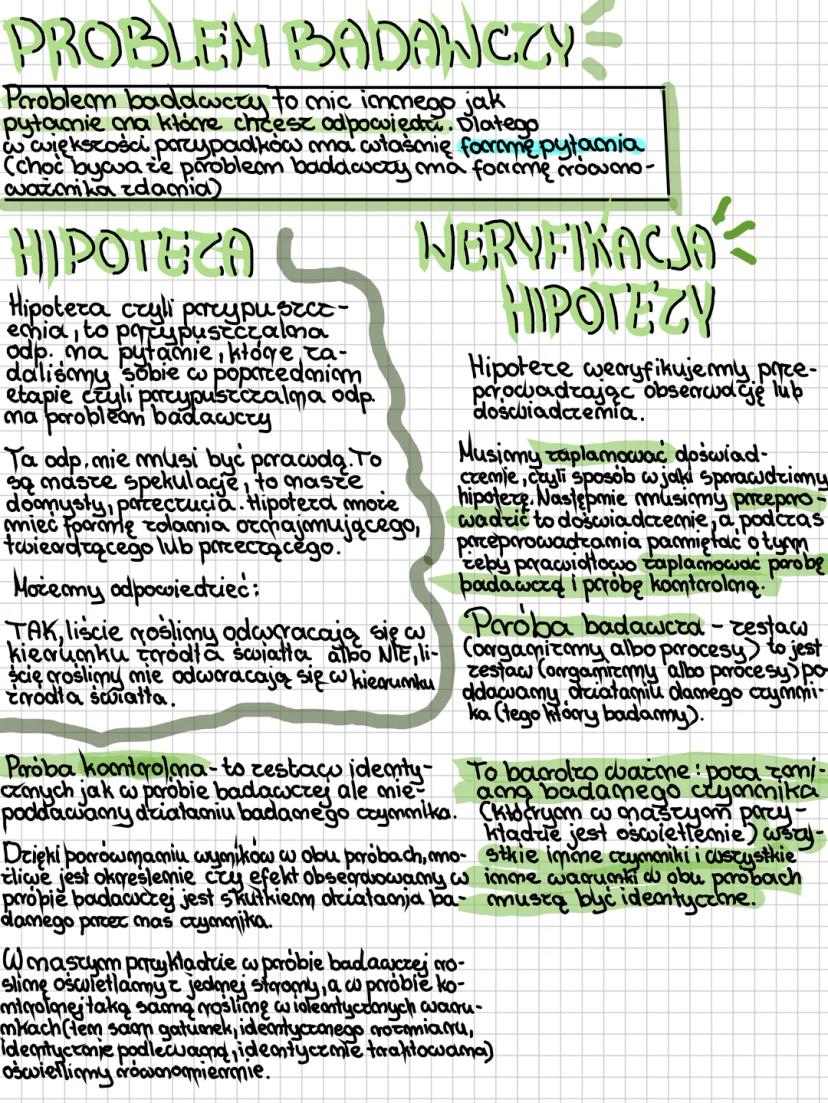 PROBLEM BADAWCZY
Problem badawczy to nic innego jak
pytanie na które chcesz odpowiedzi. Dlatego
w większości przypadków ma właśnie formę pytania
(choć bywa że problem badawczy ma formę równo-
ważnika zdania)
HIPOTEZA
Hipoteza czyli przypuszcz-
enia, to przypuszczalna
odp. na pytanie, które za-
daliśmy sobie w poprzednim
etapie czyli przypuszczalna odp.
na problem badawczy
Ta odp. nie musi być prawdą. To
są nasze spekulacje, to nasze
domysły, przeczucia. Hipoteza może
mieć formę zdania oznajmującego,
twierdzącego lub przeczącego.
Możemy odpowiedzieć:
TAK, liście rośliny odwracają się w
kierunku źródła światła albo NIE, li-
ście rośliny nie odwracają się w kierunku
źródła światła.
WERYFIKACJA
HIPOTEZY
Hipoteze weryfikujemy prze-
prowadzając obserwację lub
doświadczenia.
Musimy zaplanować doświad-
czenie, czyli sposób w jaki sprawdzimy
hipotezę. Następnie musimy przepro-
wadzić to doświadczenie, a podczas
przeprowadzania pamiętać o tym
żeby prawidłowo zaplanować próbę
badawczą i próbę kontrolną.
Próba badawcza - zestaw
(organizmy albo procesy) to jest
zestaw (organizmy albo procesy) po-
ddawany działaniu danego czynni-
ka (tego który badamy).
Próba kontrolna - to zestaw identy-
cznych jak w próbie badawczej ale nie-
poddawany działaniu badanego czynnika.
Dzięki porównaniu wyników w obu próbach, mo-
żliwe jest określenie czy efekt obserwowany w
próbie badawczej jest skutkiem działania ba-
danego przez nas czynnika.
W naszym przykładzie w próbie badawczej ro-
ślinę oświetlamy z jednej strony, a w próbie ko-
ntrolnej taką samą roślinę w identycznych waru-
nkach (ten sam gatunek, identycznego rozmiaru,
identycznie podlewaną, identycznie traktowana)
oświetlimy równomiernie.
To bardzo ważne: poza zmi-
aną badanego czynnika
(którym w naszym przy-
kładzie jest oświetlenie) wszy-
stkie inne czynniki i wszystkie
inne warunki w obu próbach
muszą być identyczne.